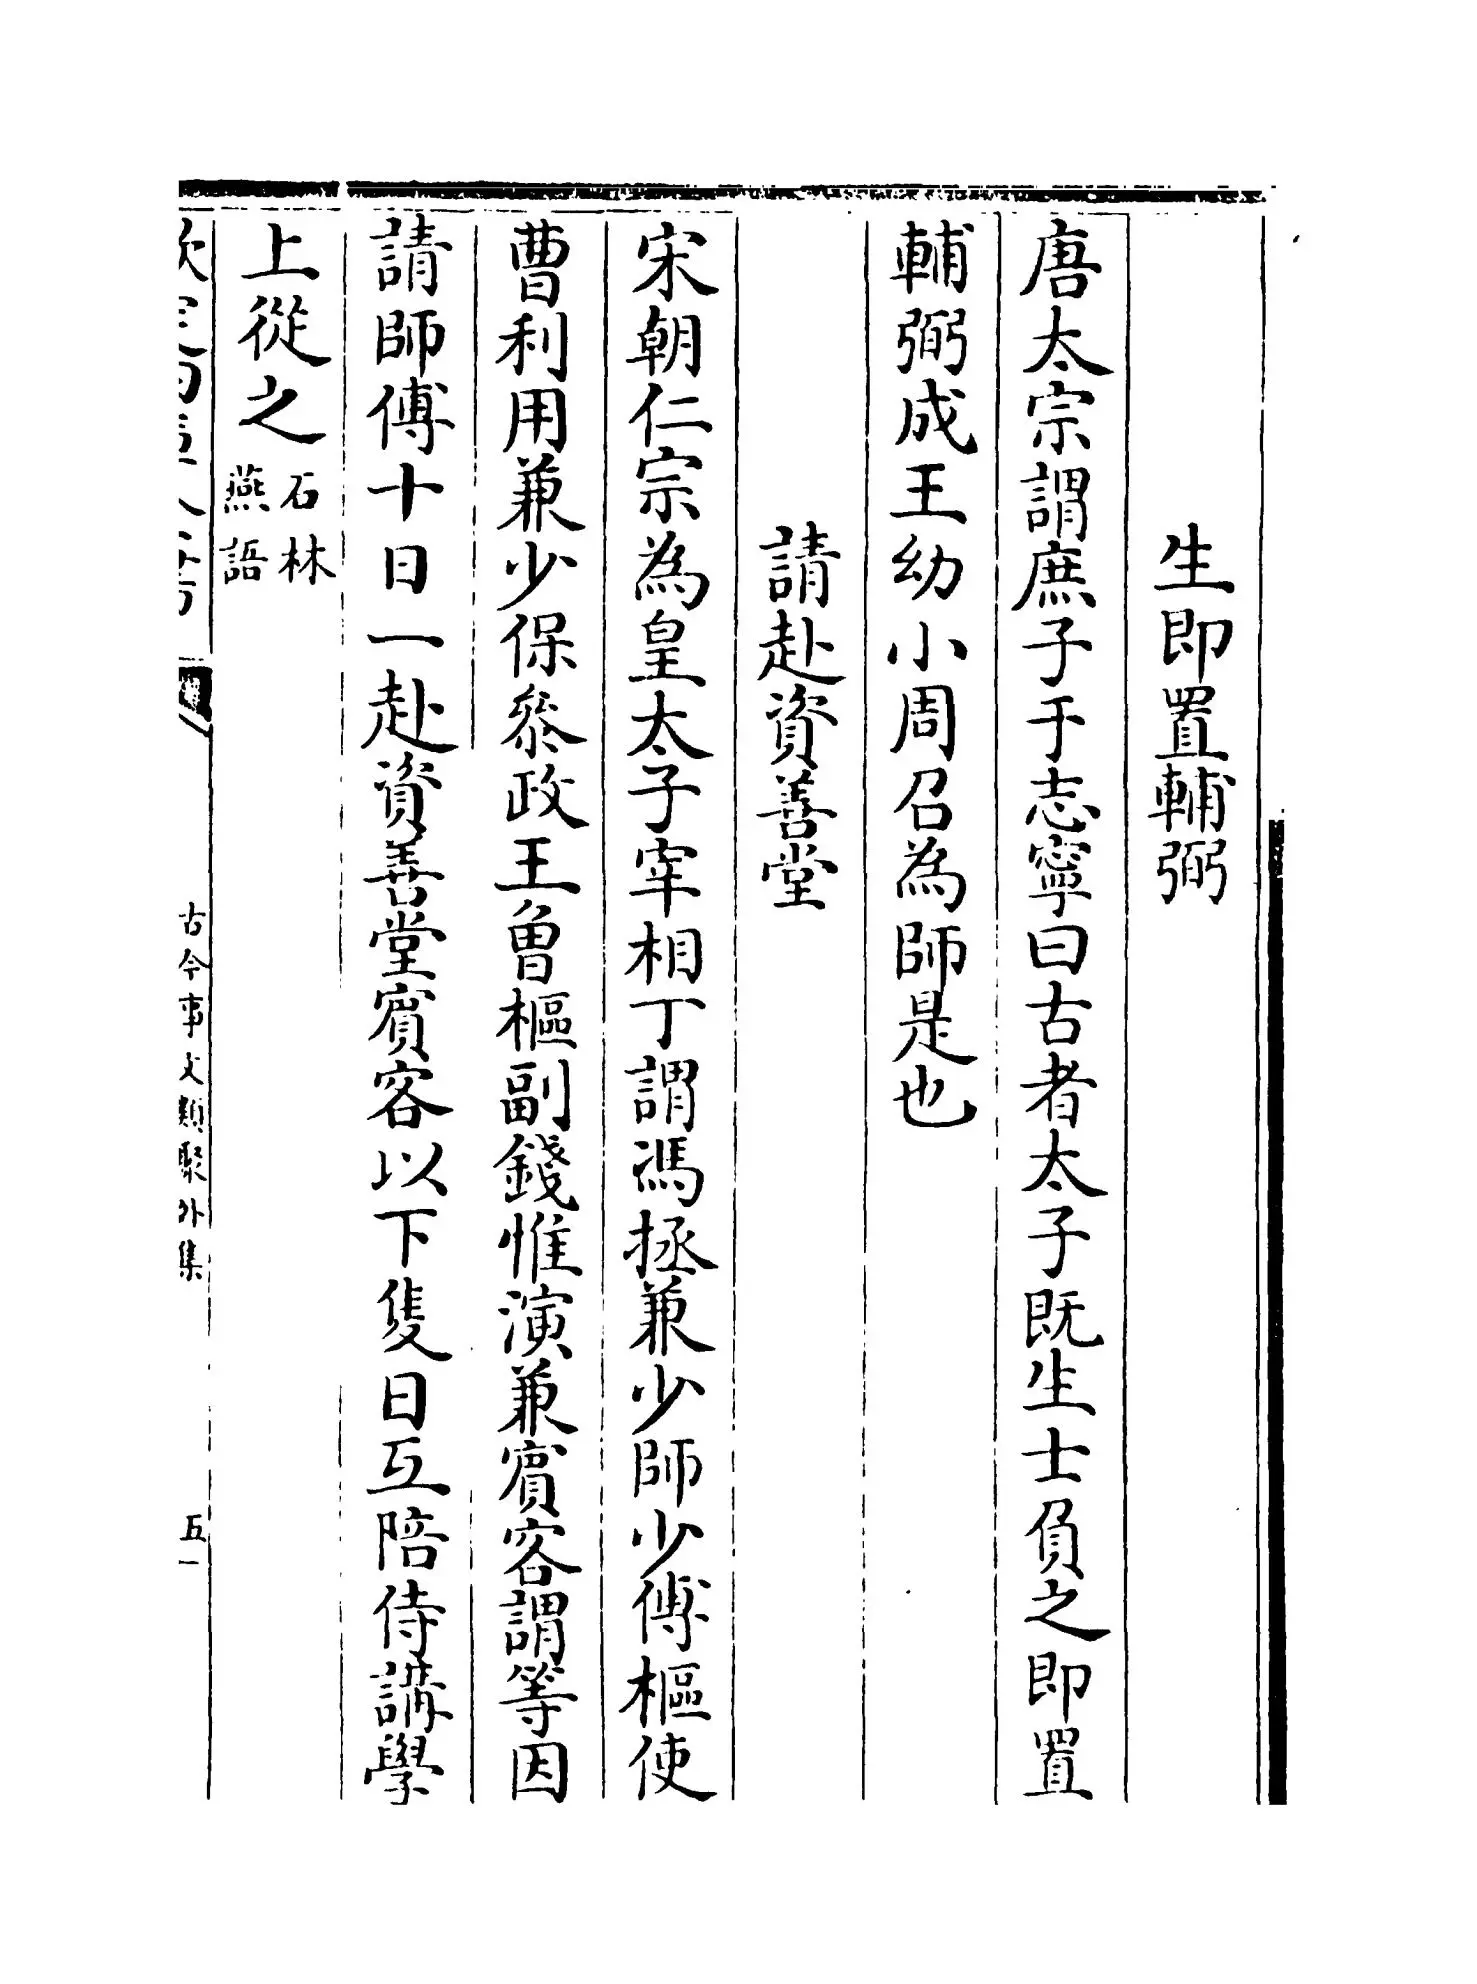 生即置輔弼
唐太宗謂庶子于志寧曰古者太子既生士負之即置
輔弼成王幼小周召為師是也
請赴資善堂
宋朝仁宗為皇太子宰相丁謂馮拯兼少師少傅樞使
曹利用兼少保叅政王曾樞副錢惟演兼賓客謂等因
請師傅十日一赴資善堂賓客以下隻日互陪侍講學
上從之石林
燕語
古今事文類聚外集
五一